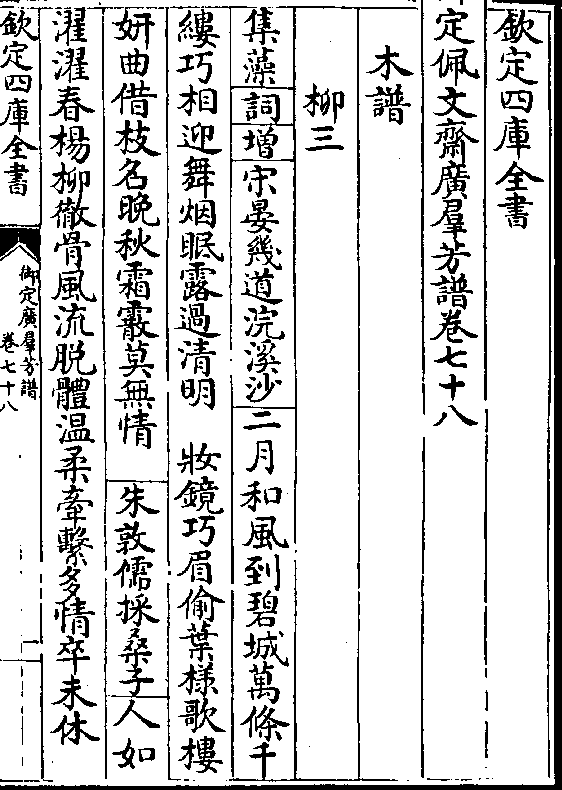 欽定四庫全書
定佩文齋廣羣芳譜卷七十八
木譜
柳三
集藻詞增宋晏幾道浣溪沙二月和風到碧城萬條千
縷巧相迎舞烟眠露過清明 妝鏡巧眉偷葉様歌樓
妍曲借枝名晚秋霜霰莫無情 朱敦儒採桑子人如
濯濯春楊柳徹骨風流脱體温柔牽繫多情卒未休
欽定四庫全書
御定廣羣芳譜
卷七十八
一